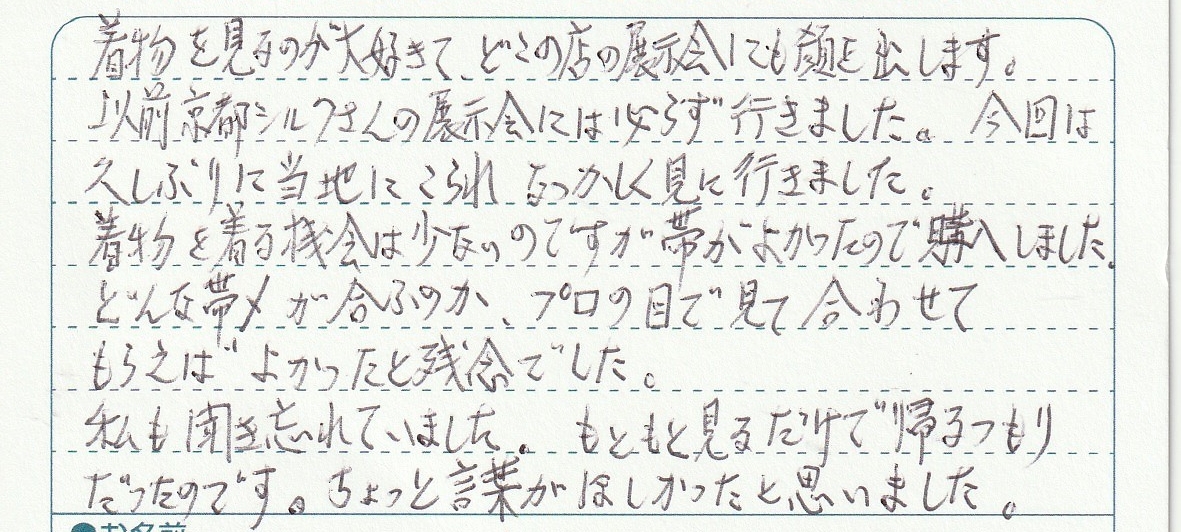 着物を見るのが大好きで、どこの店の展示会にも顔を出します。
以前京都シルクさんの展示会には必らず行きました。今回は
久しぶりに当地にこられ なつかしく見に行きました。
着物を着る機会は少ないのですが帯がよかったので購入しました。
どんな帯〆が合うのか、プロの目で見て合わせて
もらえばよかったと残念でした。
私も聞き忘れていました。もともと見るだけで帰るつもり
だったのです。ちょっと言葉がほしかったと思いました。
●お名前